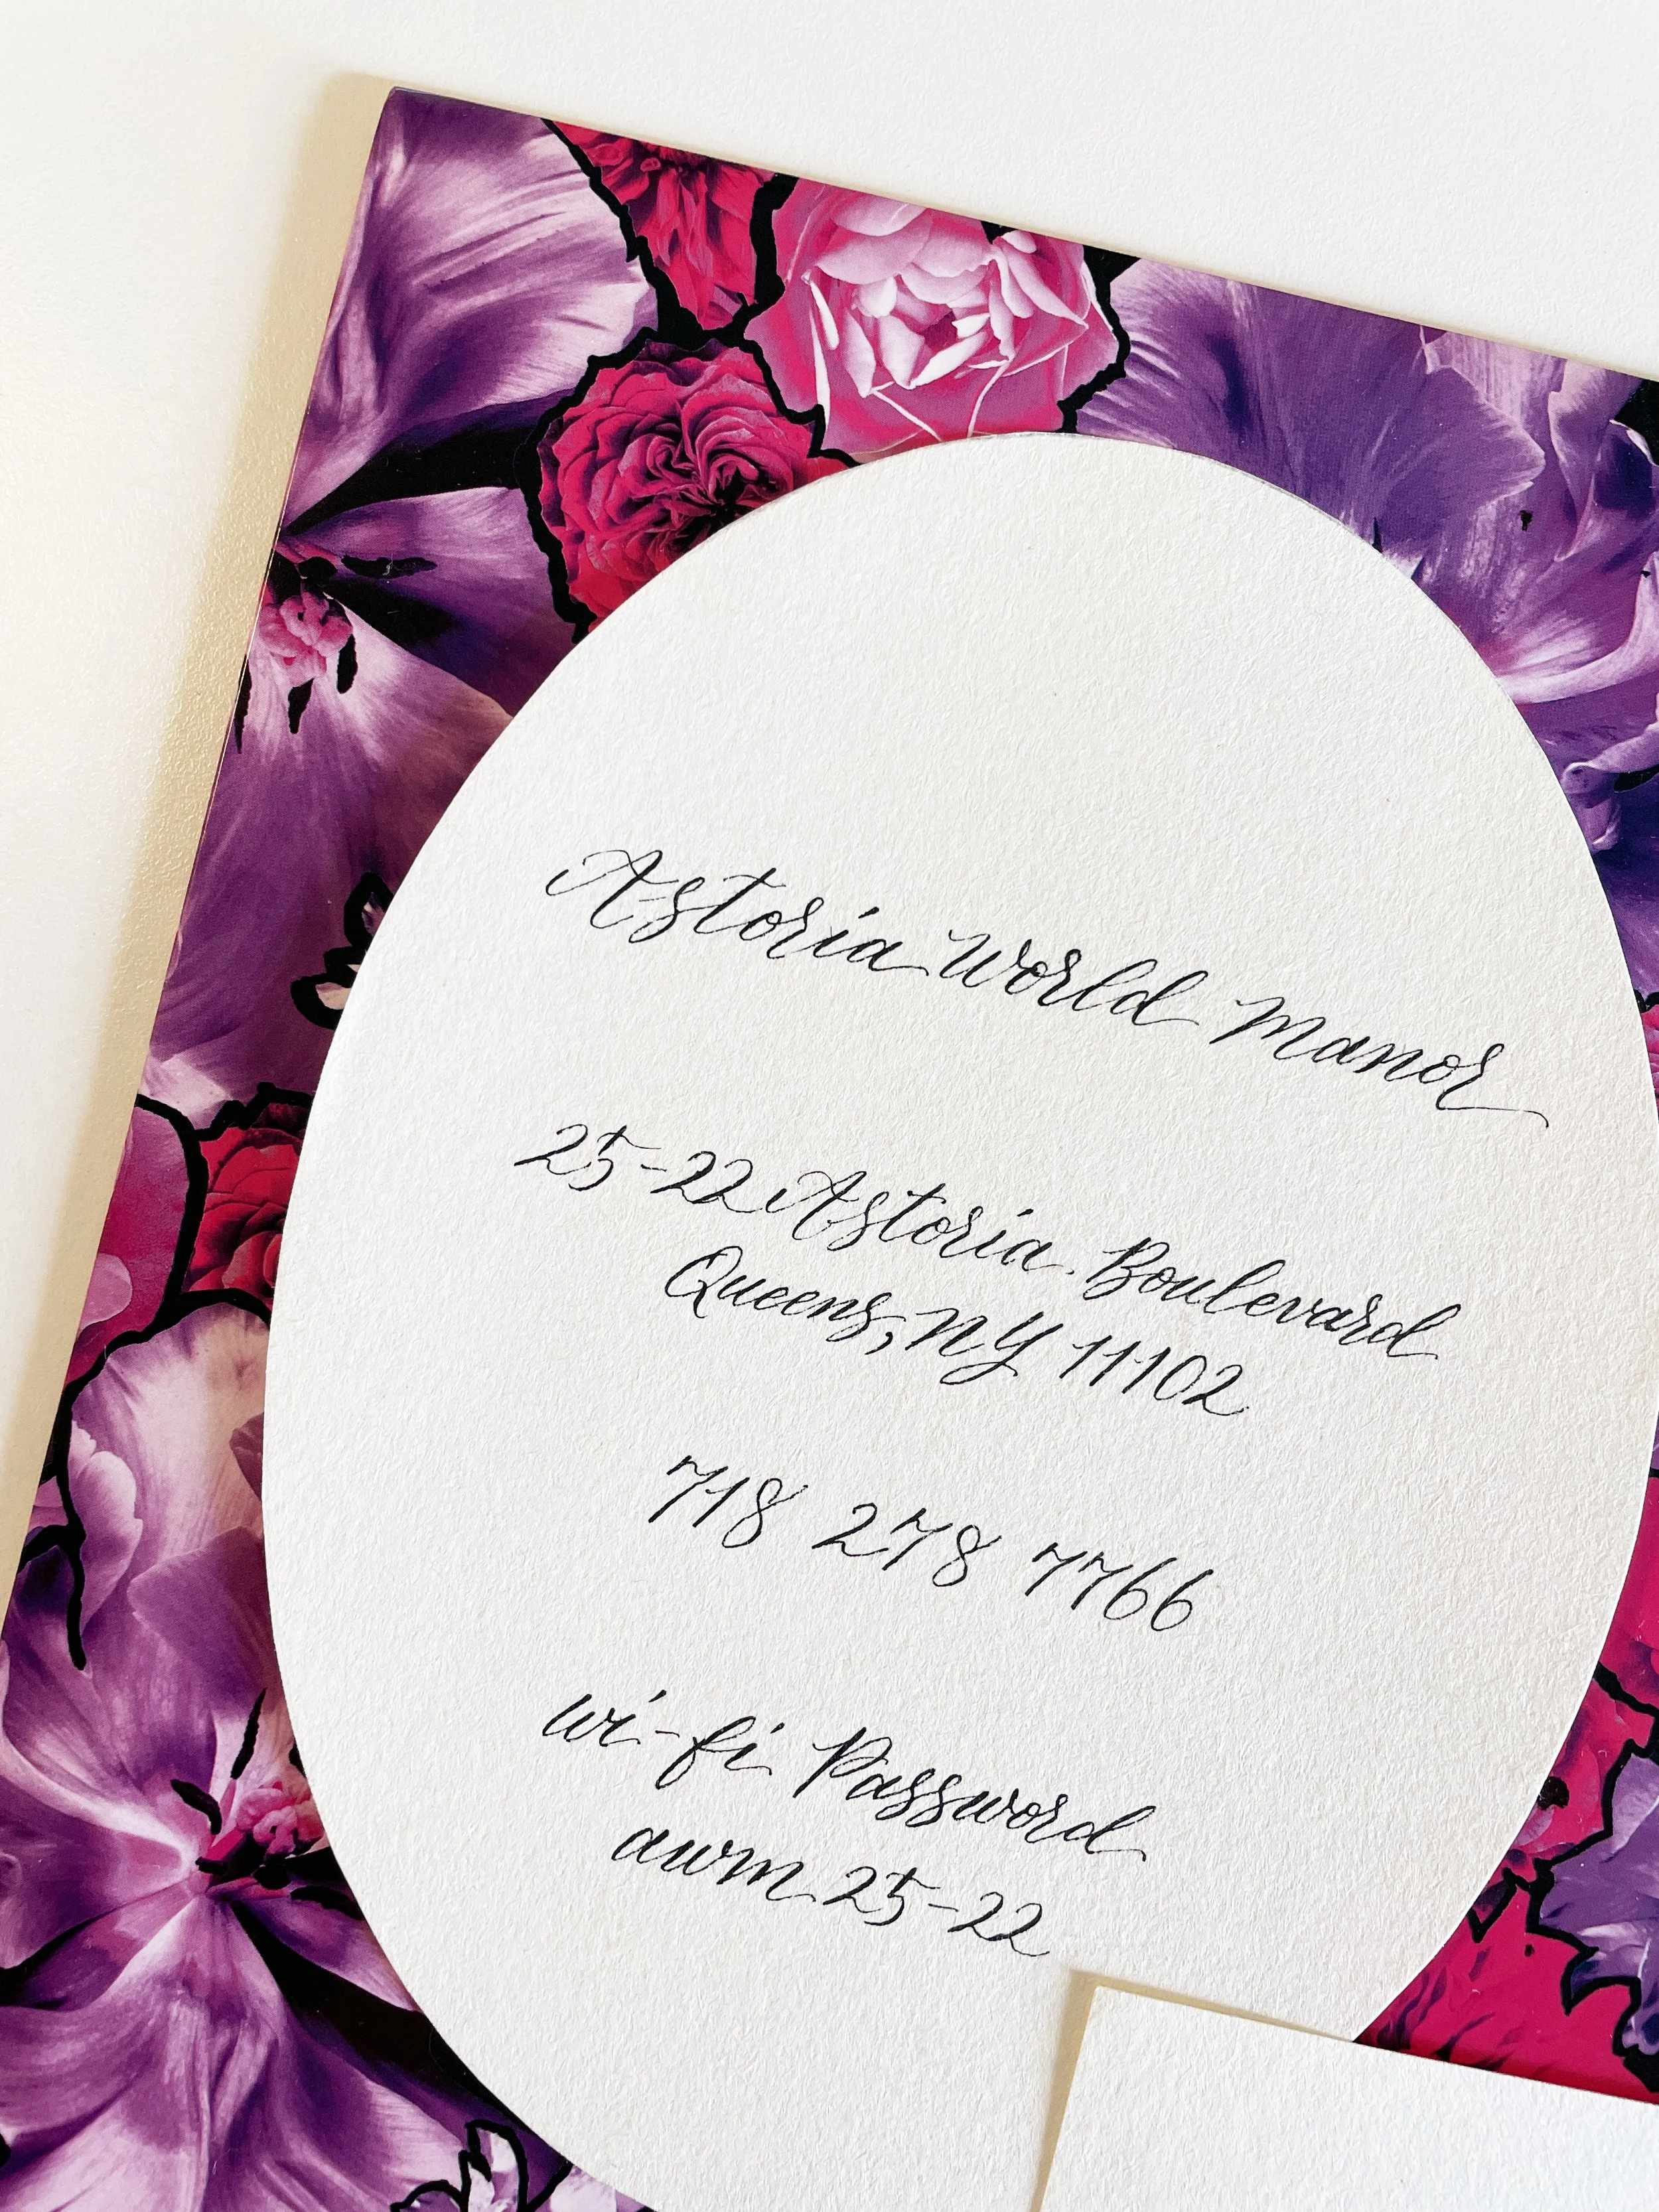 Astoria World Manor
25-22 Astoria Boulevard
Queens, NY 11102
718 278 7766
wi-fi Password
awm 25-22